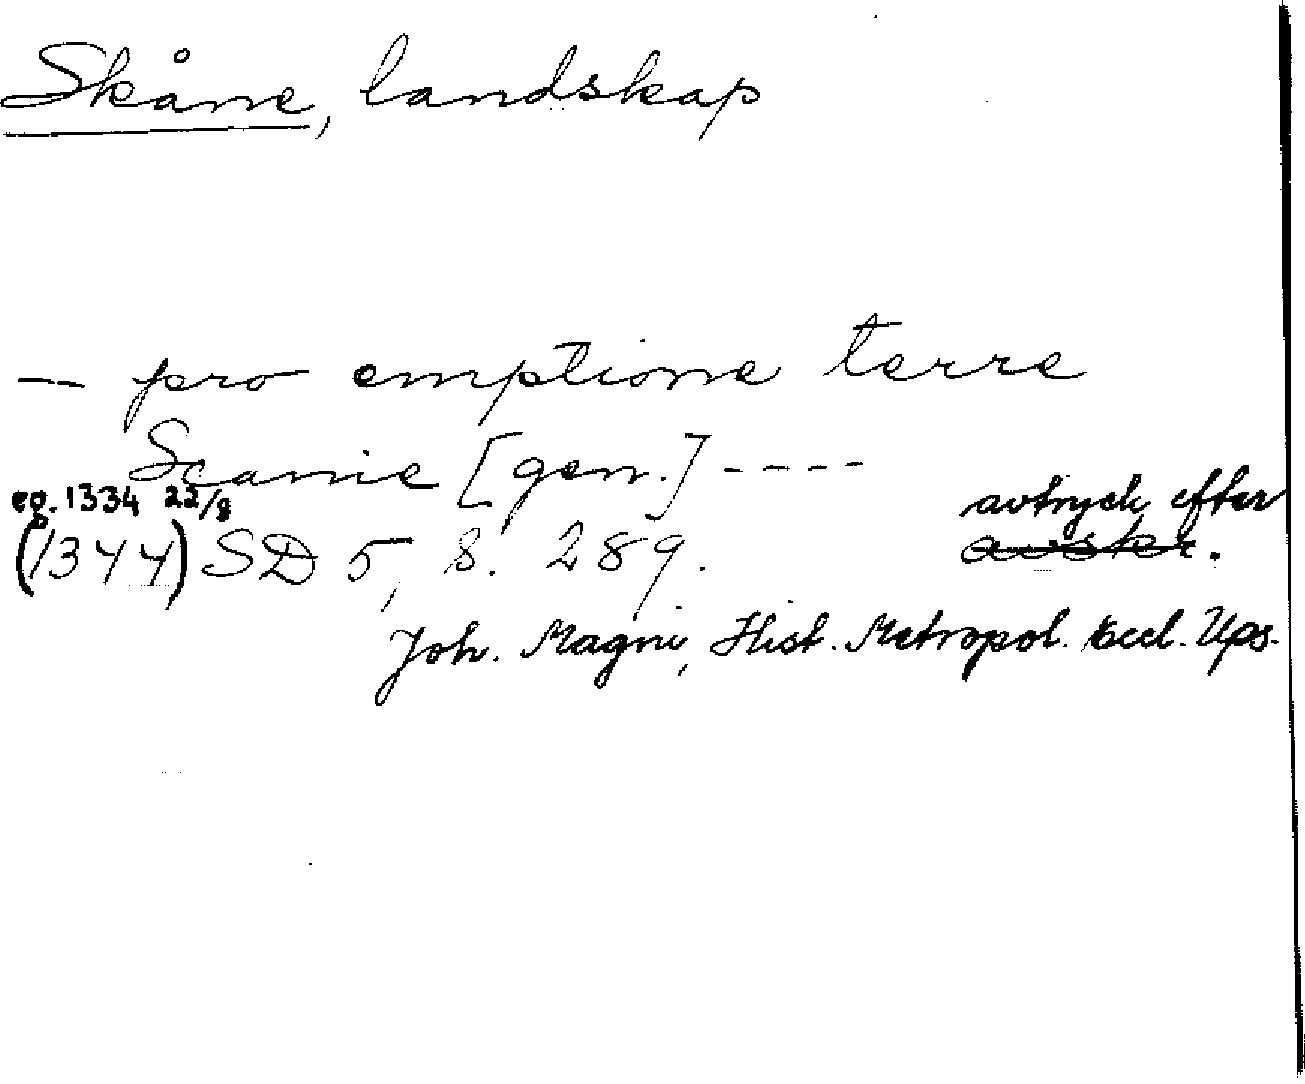 Skåne, landskap
— pro emptione terre
Scanie [gen.] ----
eg. 1334 22/8
avtryck efter
(1344) SD 5, s. 289. avskr.
Joh. Magni, Hist. Metropol. Eccl. Ups.